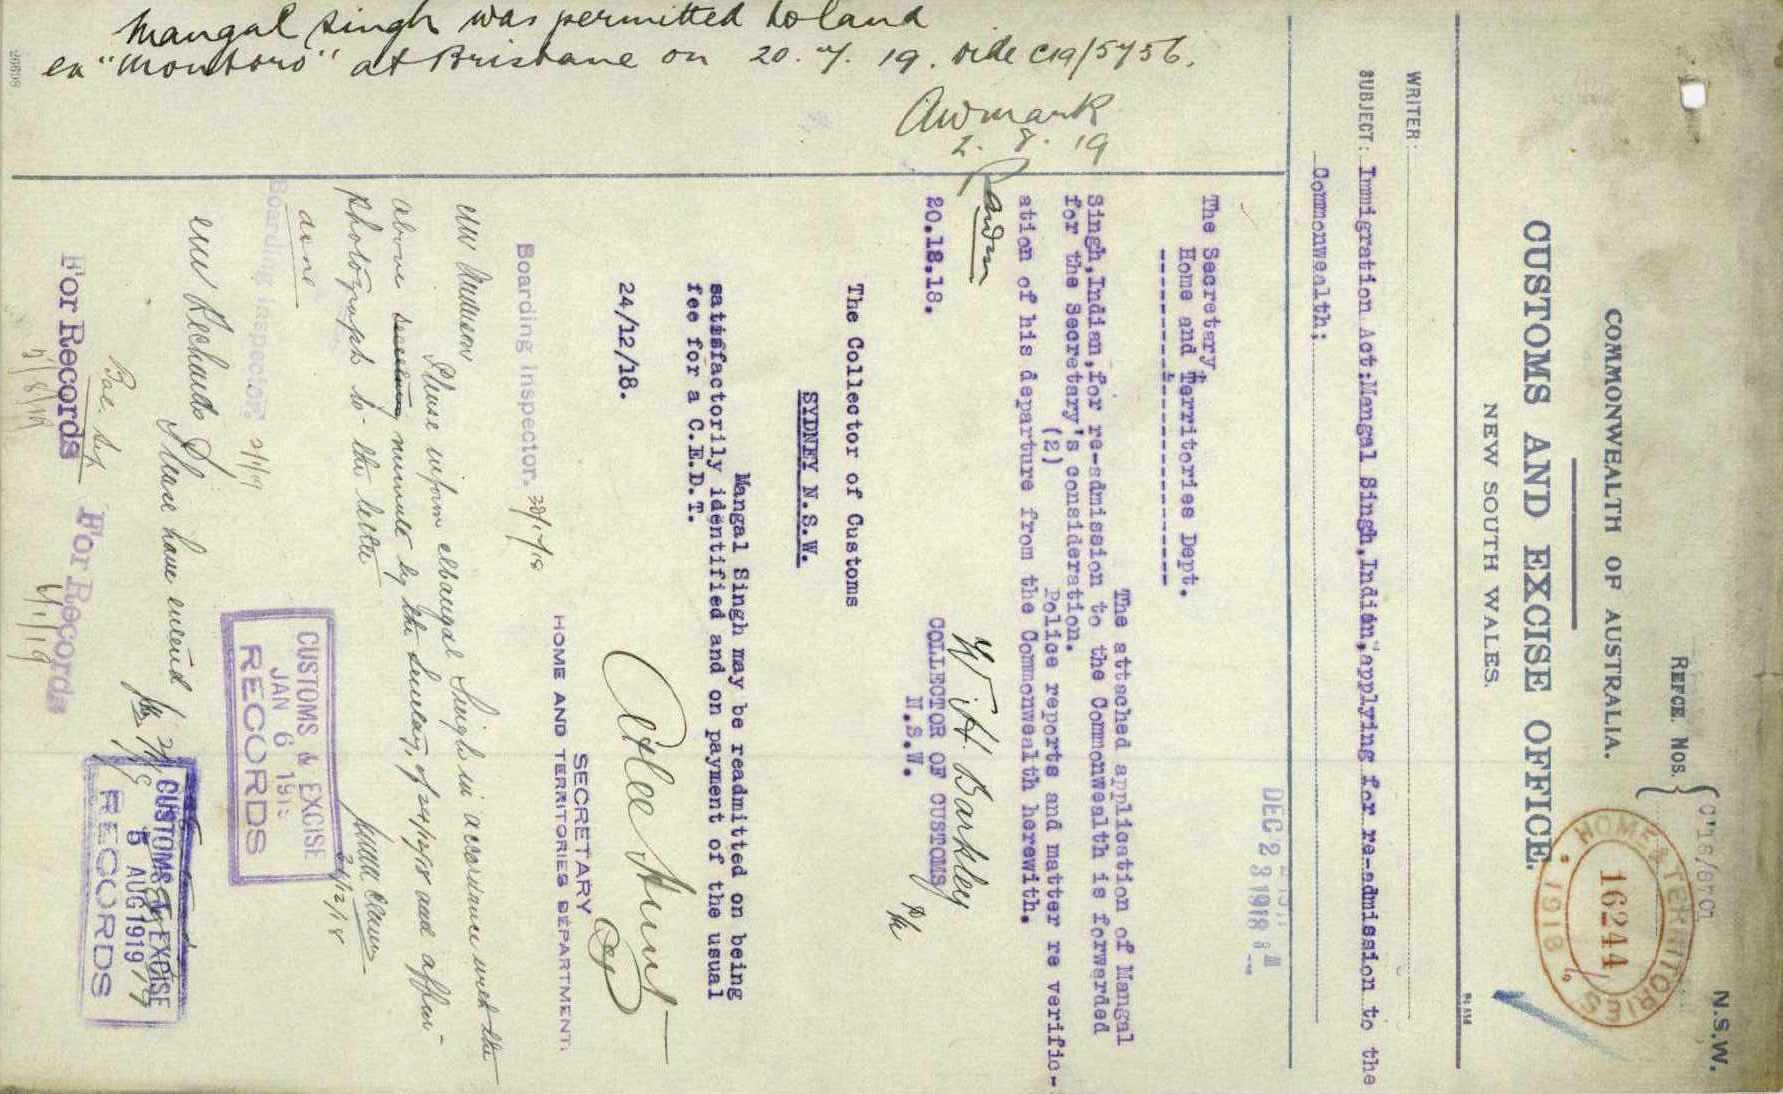 N.S.W.
REFCE. NOS.
COMMONWEALTH OF AUSTRALIA.
CUSTOMS AND EXCISE OFFICE.
NEW SOUTH WALES.
HOME & TERRITORIES
16244
1918
WRITER:
SUBJECT: Immigration Act:Mangal Singh,Indian,applying for re-admission to the
Commonwealth:
DEC 23 1918
The Secretary,
Home and Territories Dept.
The attached application of Mangal
Singh,Indian,for re-admission to the Commonwealth is forwarded
for the Secretary's consideration.
(2) Police reports and matter re verific-
ation of his departure from the Commonwealth herewith.
W. H. Barkley
COLLECTOR OF CUSTOMS
N.S.W.
20.12.18.
The Collector of Customs
SYDNEY N.S.W.
Mangal Singh may be readmitted on being
satisfactorily identified and on payment of the usual
fee for a C.E.D.T.
24/12/18.
Atlee Hunt
SECRETARY
HOME AND TERRITORIES DEPARTMENT.
Boarding Inspector.
Please inform Mangal Singh in accordance with the
above minute by the Secretary, & affix
photograph to the letter
done
Boarding Inspector.
2/1/19
CUSTOMS & EXCISE
JAN 6 191
RECORDS
Please have entered
For Records
6/1/19
For Records
CUSTOMS & EXCISE
5 AUG 1919
RECORDS
Mangal Singh was permitted to land
ex "Montoro" at Brisbane on 20.7.19. vide C19/5756.
2.8.19